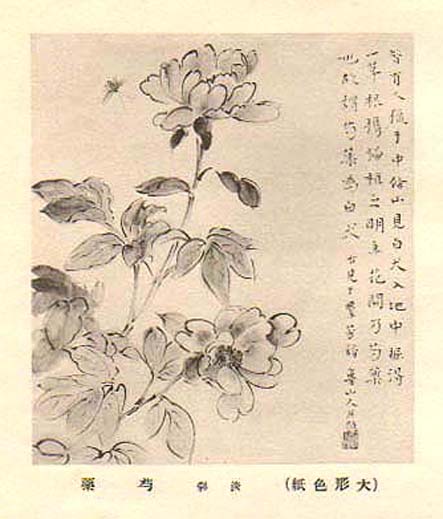 昔有人獵于中條山見白犬入地中掘得
一草根携歸植之明年花開乃芍薬
也故謂芍薬為白犬 羣芳譜 魯山
(大形色紙) 淡彩 芍藥